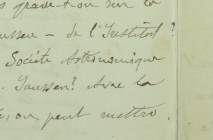 grave-t-on sur ce
— de l'Institut?
Société Astronomique
Janssen? Avec la
on peut mettre